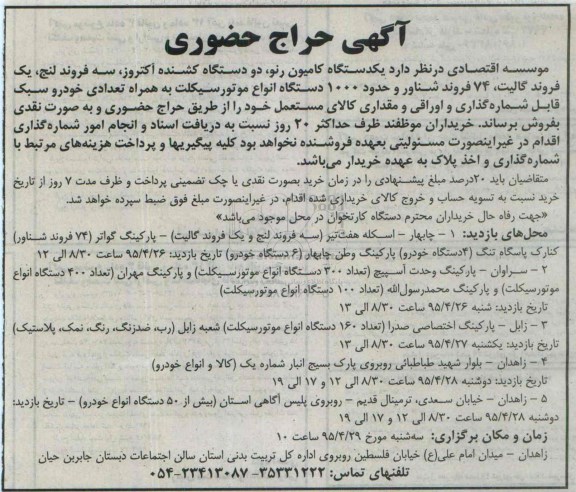 آگهی حراج حضوری
موسسه اقتصادی درنظر دارد یکدستگاه کامیون رنو، دو دستگاه کشنده آکتروز، سه فروند لنج، یک
فروند گالیت، ۷۴ فروند شناور و حدود ۱۰۰۰ دستگاه انواع موتورسیکلت به همراه تعدادی خودرو سبک
قابل شماره‌گذاری و اوراقی و مقداری کالای مستعمل خود را از طریق حراج حضوری و به صورت نقدی
بفروش برساند. خریداران موظفند ظرف حداکثر ۲۰ روز نسبت به دریافت اسناد و انجام امور شماره‌گذاری
اقدام در غیراینصورت مسئولیتی بعهده فروشنده نخواهد بود کلیه پیگیریها و پرداخت هزینه‌های مرتبط با
شماره‌گذاری و اخذ پلاک به عهده خریدار می‌باشد.
متقاضیان باید ۲۰درصد مبلغ پیشنهادی را در زمان خرید بصورت نقدی یا چک تضمینی پرداخت و ظرف مدت ۷ روز از تاریخ
خرید نسبت به تسویه حساب و خروج کالای خریداری شده اقدام، در غیراینصورت مبلغ فوق ضبط سپرده خواهد شد.
«جهت رفاه حال خریداران محترم دستگاه کارتخوان در محل موجود می‌باشد»
محل‌های بازدید: ۱ – چابهار – اسکله هفت‌تیر (سه فروند لنج و یک فروند گالیت) – پارکینگ گواتر (۷۴ فروند شناور)
کنارک پاسگاه تنگ (۴دستگاه خودرو) پارکینگ وطن چابهار (۶ دستگاه خودرو) تاریخ بازدید: ۹۵/۴/۲۶ ساعت ۸/۳۰ الی ۱۲
۲ – سراوان – پارکینگ وحدت آسپیچ (تعداد ۳۰۰ دستگاه انواع موتورسیکلت) و پارکینگ مهران (تعداد ۴۰۰ دستگاه انواع
موتورسیکلت) و پارکینگ محمدرسول‌الله (تعداد ۱۰۰ دستگاه انواع موتورسیکلت)
تاریخ بازدید: شنبه ۹۵/۴/۲۶ ساعت ۸/۳۰ الی ۱۳
۳ – زابل – پارکینگ اختصاصی صدرا (تعداد ۱۶۰ دستگاه انواع موتورسیکلت) شعبه زابل (رب، ضدزنگ، رنگ، نمک، پلاستیک)
تاریخ بازدید: یکشنبه ۹۵/۴/۲۷ ساعت ۸/۳۰ الی ۱۳
۴ – زاهدان – بلوار شهید طباطبائی روبروی پارک بسیج انبار شماره یک (کالا و انواع خودرو)
تاریخ بازدید: دوشنبه ۹۵/۴/۲۸ ساعت ۸/۳۰ الی ۱۲ و ۱۷ الی ۱۹
۵ – زاهدان – خیابان سعدی، ترمینال قدیم – روبروی پلیس آگاهی استان (بیش از ۵۰ دستگاه انواع خودرو) – تاریخ بازدید:
دوشنبه ۹۵/۴/۲۸ ساعت ۸/۳۰ الی ۱۲ و ۱۷ الی ۱۹
زمان و مکان برگزاری: سه‌شنبه مورخ ۹۵/۴/۲۹ ساعت ۱۰
زاهدان – میدان امام علی(ع) خیابان فلسطین روبروی اداره کل تربیت بدنی استان سالن اجتماعات دبستان جابربن حیان
تلفنهای تماس: ۳۵۳۳۱۲۲۲–۰۵۴-۲۳۴۱۳۰۸۷